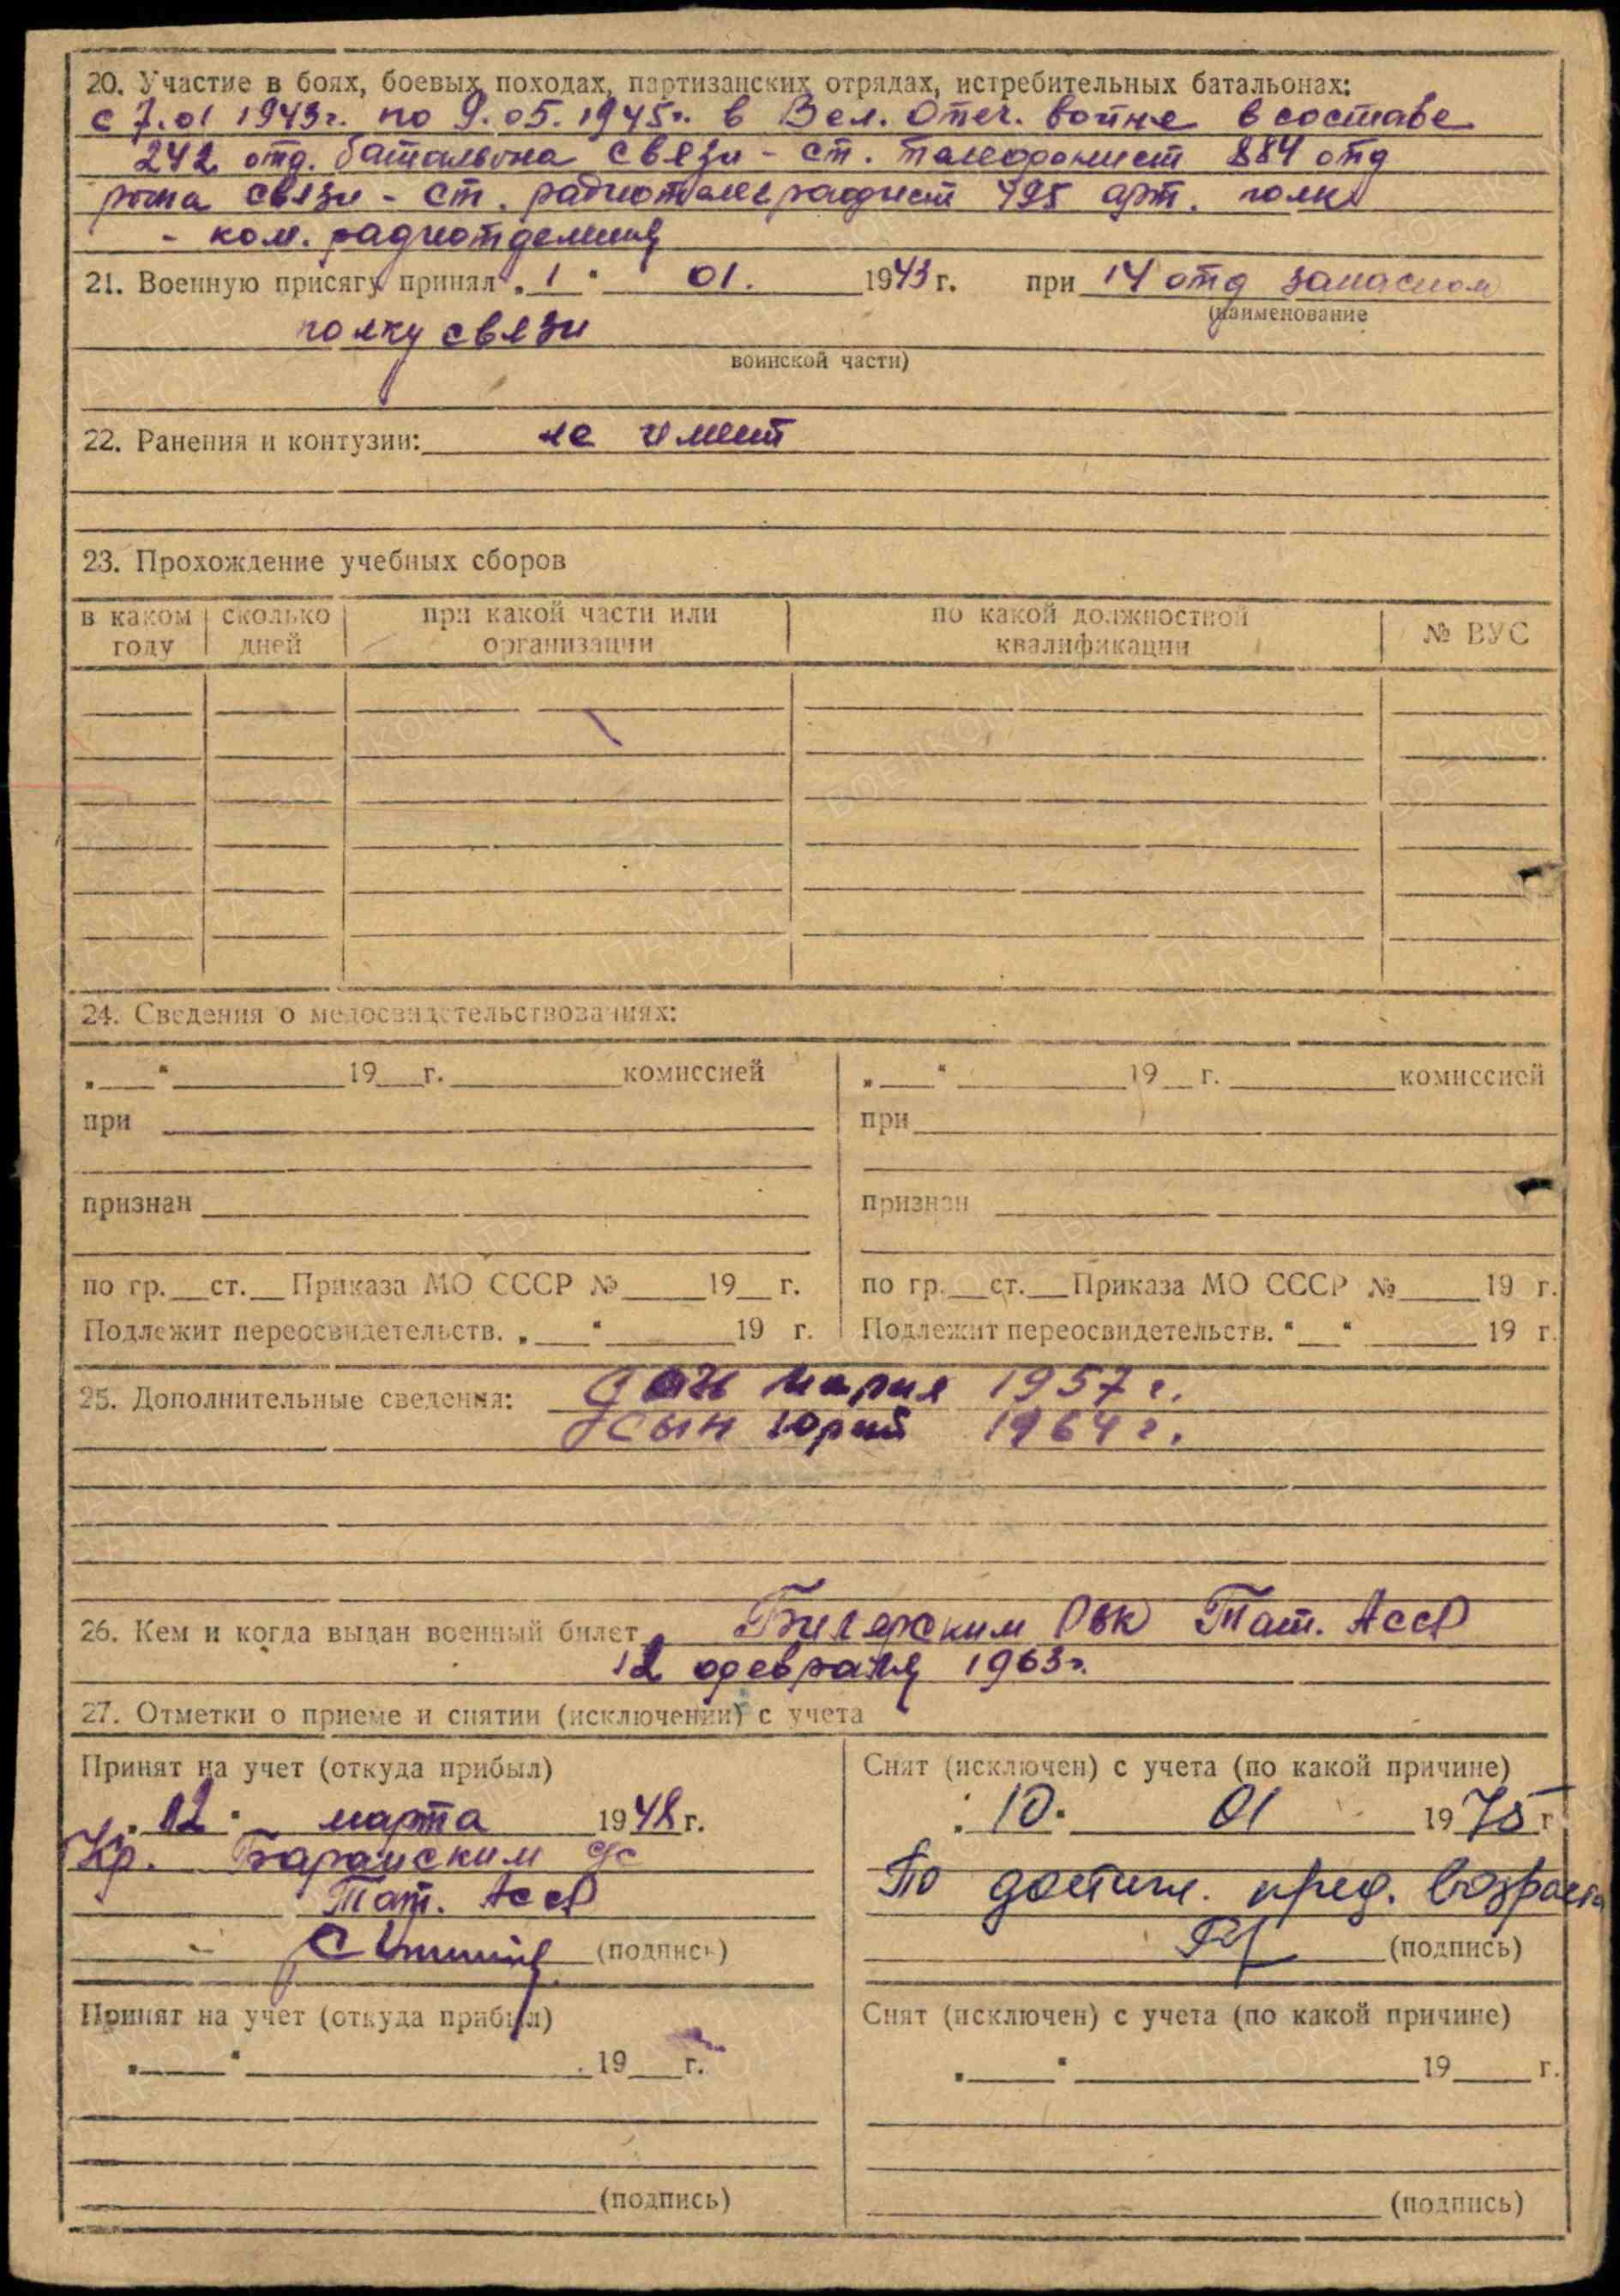 20. Участие в боях, боевых походах, партизанских отрядах, истребительных батальонах:
с 7.01 1943г. по 9.05.1945г. в Вел. Отеч. войне в составе
242 отд. батальона связи - ст. телефонист 884 отд
рота связи - ст. радиотелеграфист 795 арт. полк
- ком. радиотделения
21. Военную присягу принял „1“ 01. 1943 г. при 14 отд запасном
(наименование
полку связи
воинской части)
22. Ранения и контузии: не имеет
23. Прохождение учебных сборов
в каком году | сколько дней | при какой части или организации | по какой должностной квалификации | № ВУС
24. Сведения о медосвидетельствованиях:
„__“ ____ 19__г. ____ комиссией „__“ ____ 19__ г. ____ комиссией
при при
признан признан
по гр.__ст.__ Приказа МО СССР №____19__ г. по гр.__ст.__Приказа МО СССР №____19 г.
Подлежит переосвидетельств. „__“ ____19 г. Подлежит переосвидетельств. “__“ ____ 19 г.
25. Дополнительные сведения: Мария 1957 г.
сын Юрий 1964 г.
26. Кем и когда выдан военный билет Билярским РВК Тат. АССР
12 февраля 1963г.
27. Отметки о приеме и снятии (исключении) с учета
Принят на учет (откуда прибыл)
„12“ марта 1948 г.
Кр. Барайским
Тат. АССР
(подпись)
Снят (исключен) с учета (по какой причине)
„10“ 01 1975 г
По достиж. пред. возраста
(подпись)
Принят на учет (откуда прибыл)
„____“ ____ 19__г.
(подпись)
Снят (исключен) с учета (по какой причине)
„____“ ____ 19____ г.
(подпись)